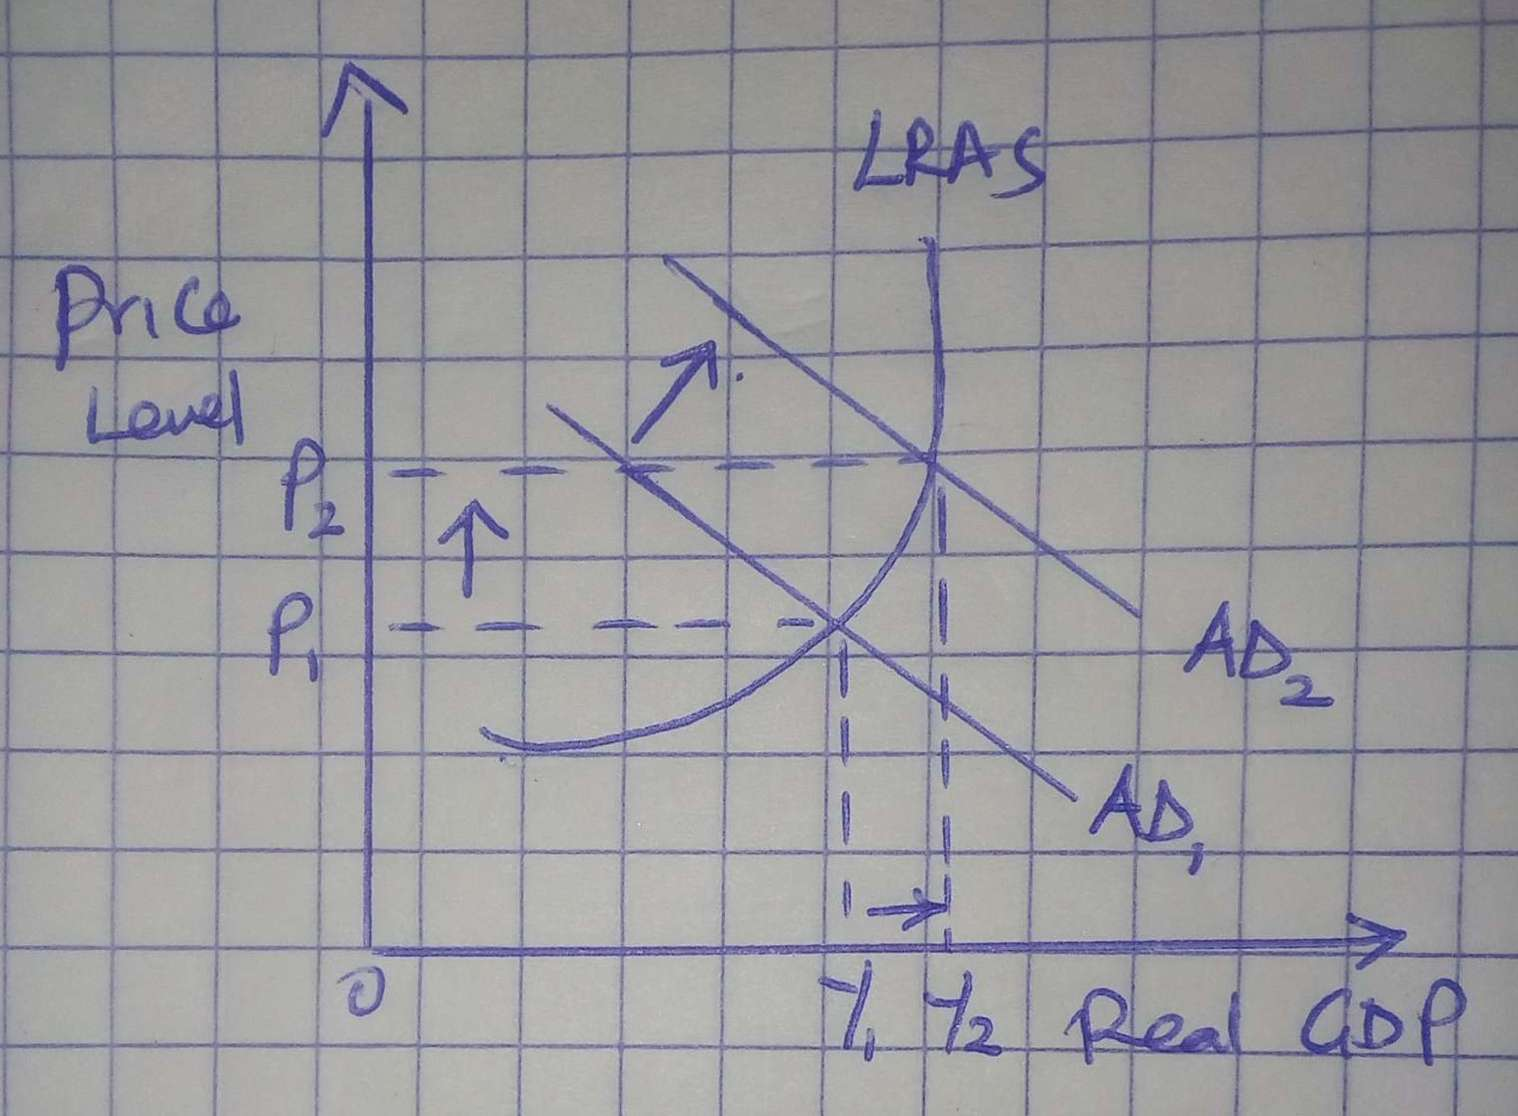 LRAS
Price
Level
P₂
P₁
AD₂
AD₁
0
Y₁ Y₂ Real GDP